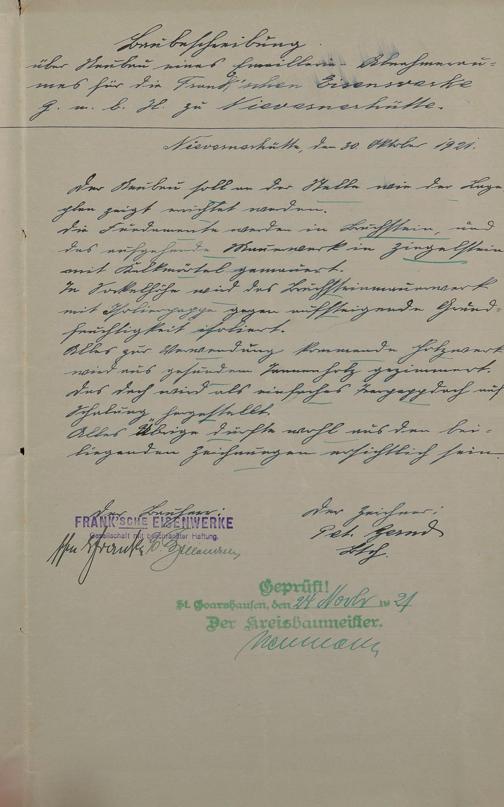 Baubeschreibung
über Neubau eines Emaillen- Abnahmerau=
mes für die Frank'schen Eisenwerke
G. m. b. H. zu Nievernerhütte.
Nievernerhütte, den 30. Oktober 1921.
Der Neubau soll an der Stelle wie der Lage
plan zeigt errichtet werden.
Die Fundamente werden in Bruchstein, und
das aufgehende Mauerwerk in Ziegelstein
mit Kalkmörtel gemauert.
In Sockelhöhe wird das Bruchsteinmauerwerk
mit Isolierpappe gegen aufsteigende Grund=
feuchtigkeit isoliert.
Alles zur Verwendung kommende Holzwerk
wird aus gesundem Tannenholz gezimmert.
Das Dach wird als einfaches Teerpappdach auf
Schalung hergestellt.
Alles Übrige dürfte wohl aus den bei-
liegenden Zeichnungen ersichtlich sein.
Der Bauherr:
FRANK'SCHE EISENWERKE
Gesellschaft mit beschränkter Haftung.
Der Zeichner:
Pet.
Geprüft!
St. Goarshausen, den 24 Novbr 1921
Der Kreisbaumeister.
Neumann